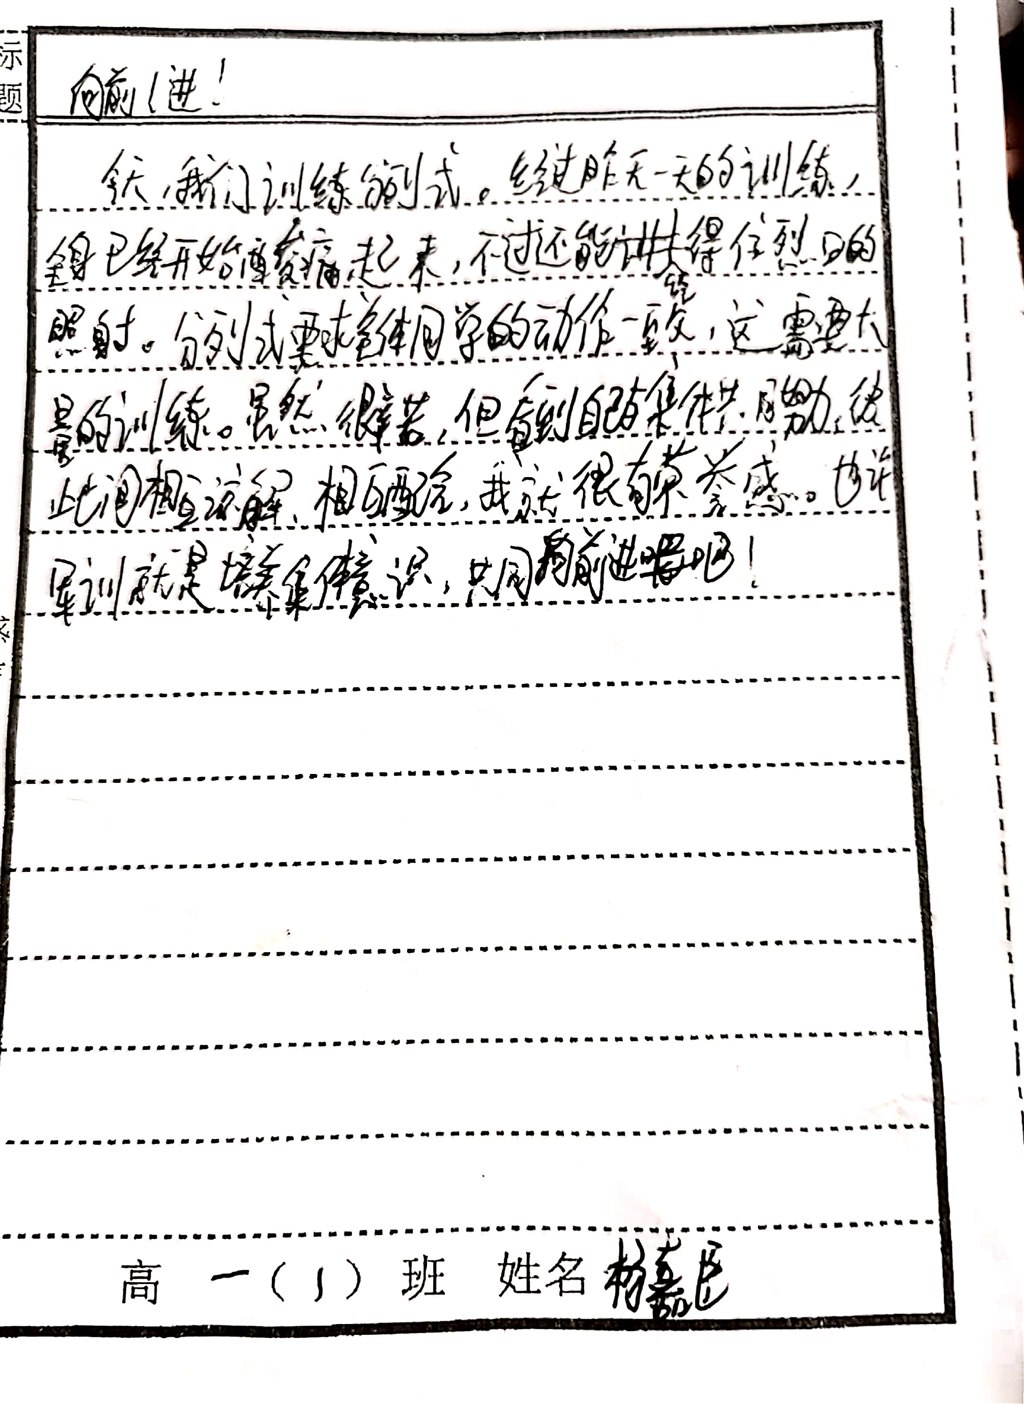 标题
向前(进!
今天,我们训练分列式。经过昨天一天的训练,
全身已经开始酸痛起来,不过还能得住烈日的
照射。分列式要求全体同学的动作一致,这需要大
量的训练。虽然很辛苦,但看到自己集体共同努力,彼
此间相互谅解、相互配合,我就很有荣誉感。也许
军训就是培养集体意识,共同向前进吧!
高一(1)班 姓名 杨嘉